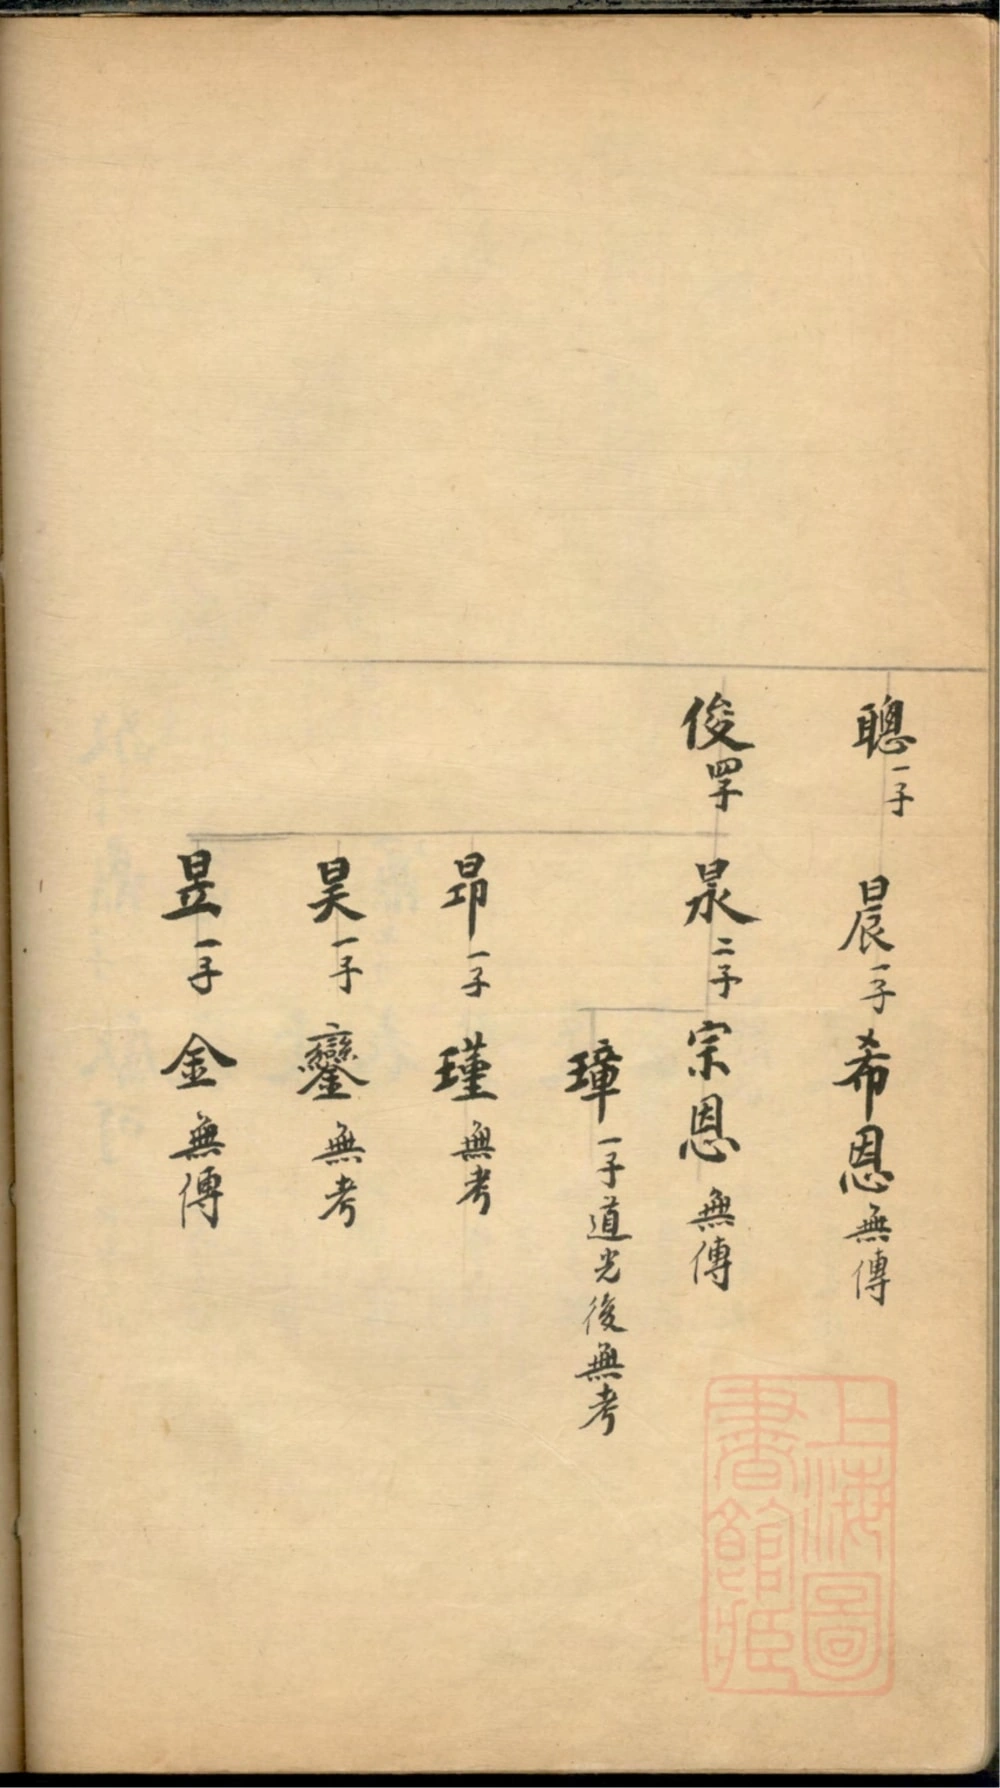 聰 一子 晨 一子 希恩 無傳
俊 四子 泉 二子 宗恩 無傳
璋 一子 道光後無考
昂 一子 瑾 無考
昊 一子 鑾 無考
昱 一子 金 無傳
上海圖
書館藏